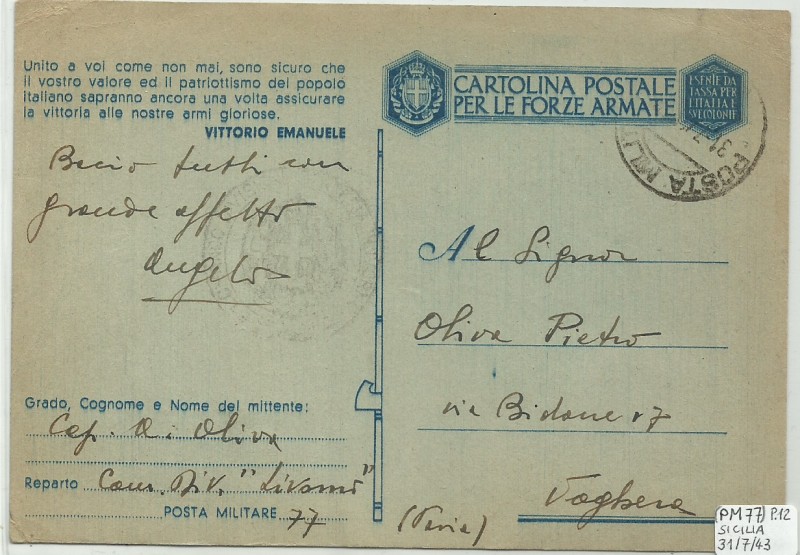 Unito a voi come non mai, sono sicuro che
il vostro valore ed il patriottismo del popolo
italiano sapranno ancora una volta assicurare
la vittoria alle nostre armi gloriose.
VITTORIO EMANUELE
Bacio tutti con
grande affetto
Angelo
Grado, Cognome e Nome del mittente:
Cap. A. Oliva
Reparto Com. Div. "Livorno"
POSTA MILITARE 77
CARTOLINA POSTALE
PER LE FORZE ARMATE
ESENTE DA
TASSA PER
L'ITALIA E
SUE COLONIE
POSTA MILIT
31.7
Al Signor
Oliva Pietro
via Bidone 17
Voghera
(Pavia)
(PM77) P.12
SICILIA
31/7/43